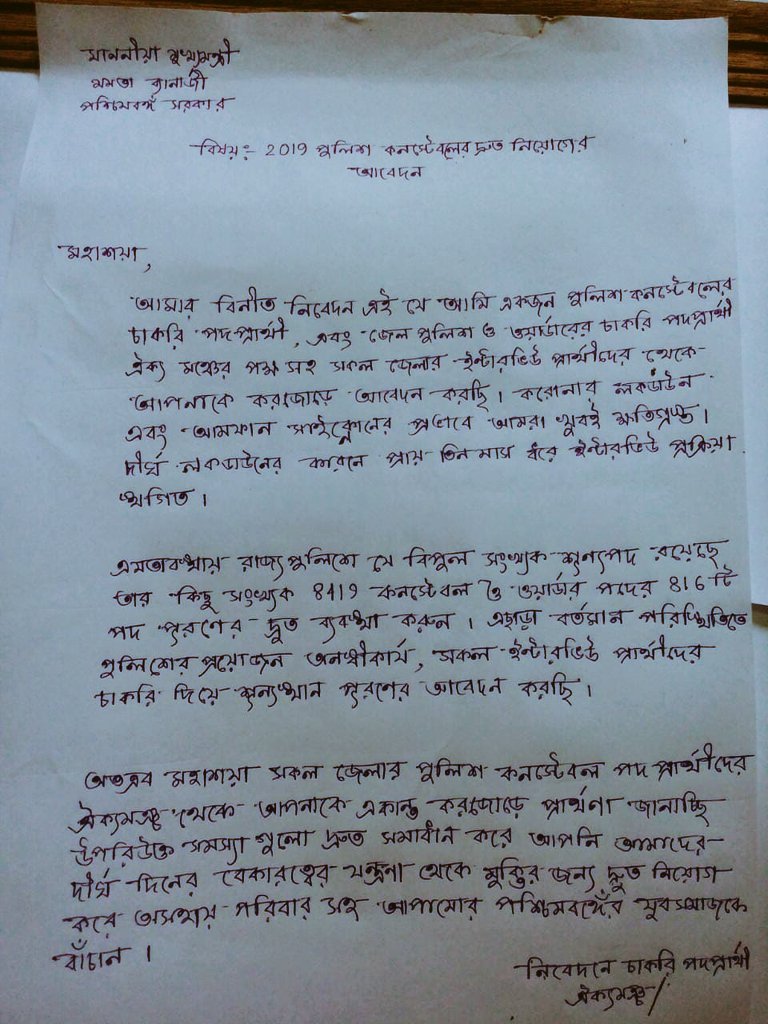 মাননীয়া মুখ্যমন্ত্রী
মমতা ব্যানার্জী
পশ্চিমবঙ্গ সরকার
বিষয়ঃ- 2019 পুলিশ কনস্টেবলের দ্রুত নিয়োগের
আবেদন
মহাশয়া,
আমার বিনীত নিবেদন এই যে আমি একজন পুলিশ কনস্টেবলের
চাকরি পদপ্রার্থী, এবং জেল পুলিশ ও ওয়ার্ডারের চাকরি পদপ্রার্থী
ঐক্য মঞ্চের পক্ষ সহ সকল জেলার ইন্টারভিউ প্রার্থীদের থেকে
আপনাকে করজোড়ে আবেদন করছি। করোনার লকডাউন
এবং আমফান সাইক্লোনের প্রভাবে আমরা খুবই ক্ষতিগ্রস্ত।
দীর্ঘ লকডাউনের কারনে প্রায় তিন মাস ধরে ইন্টারভিউ প্রক্রিয়া
স্থগিত।
এমতাবস্থায় রাজ্য পুলিশে যে বিপুল সংখ্যক শূন্যপদ রয়েছে
তার কিছু সংখ্যক 8419 কনস্টেবল ও ওয়ার্ডার পদের 816 টি
পদ পূরণের দ্রুত ব্যবস্থা করুন। এছাড়া বর্তমান পরিস্থিতিতে
পুলিশের প্রয়োজন অনস্বীকার্য, সকল ইন্টারভিউ প্রার্থীদের
চাকরি দিয়ে শূন্যস্থান পূরণের আবেদন করছি।
অতএব মহাশয়া সকল জেলার পুলিশ কনস্টেবল পদ প্রার্থীদের
ঐক্যমঞ্চ থেকে আপনাকে একান্ত করজোড়ে প্রার্থণা জানাচ্ছি
উপরিউক্ত সমস্যা গুলো দ্রুত সমাধান করে আপনি আমাদের
দীর্ঘ দিনের বেকারত্বের যন্ত্রনা থেকে মুক্তির জন্য দ্রুত নিয়োগ
করে অসহায় পরিবার সহ আপামোর পশ্চিমবঙ্গের যুবসমাজকে
বাঁচান।
নিবেদনে চাকরি পদপ্রার্থী
ঐক্যমঞ্চ/